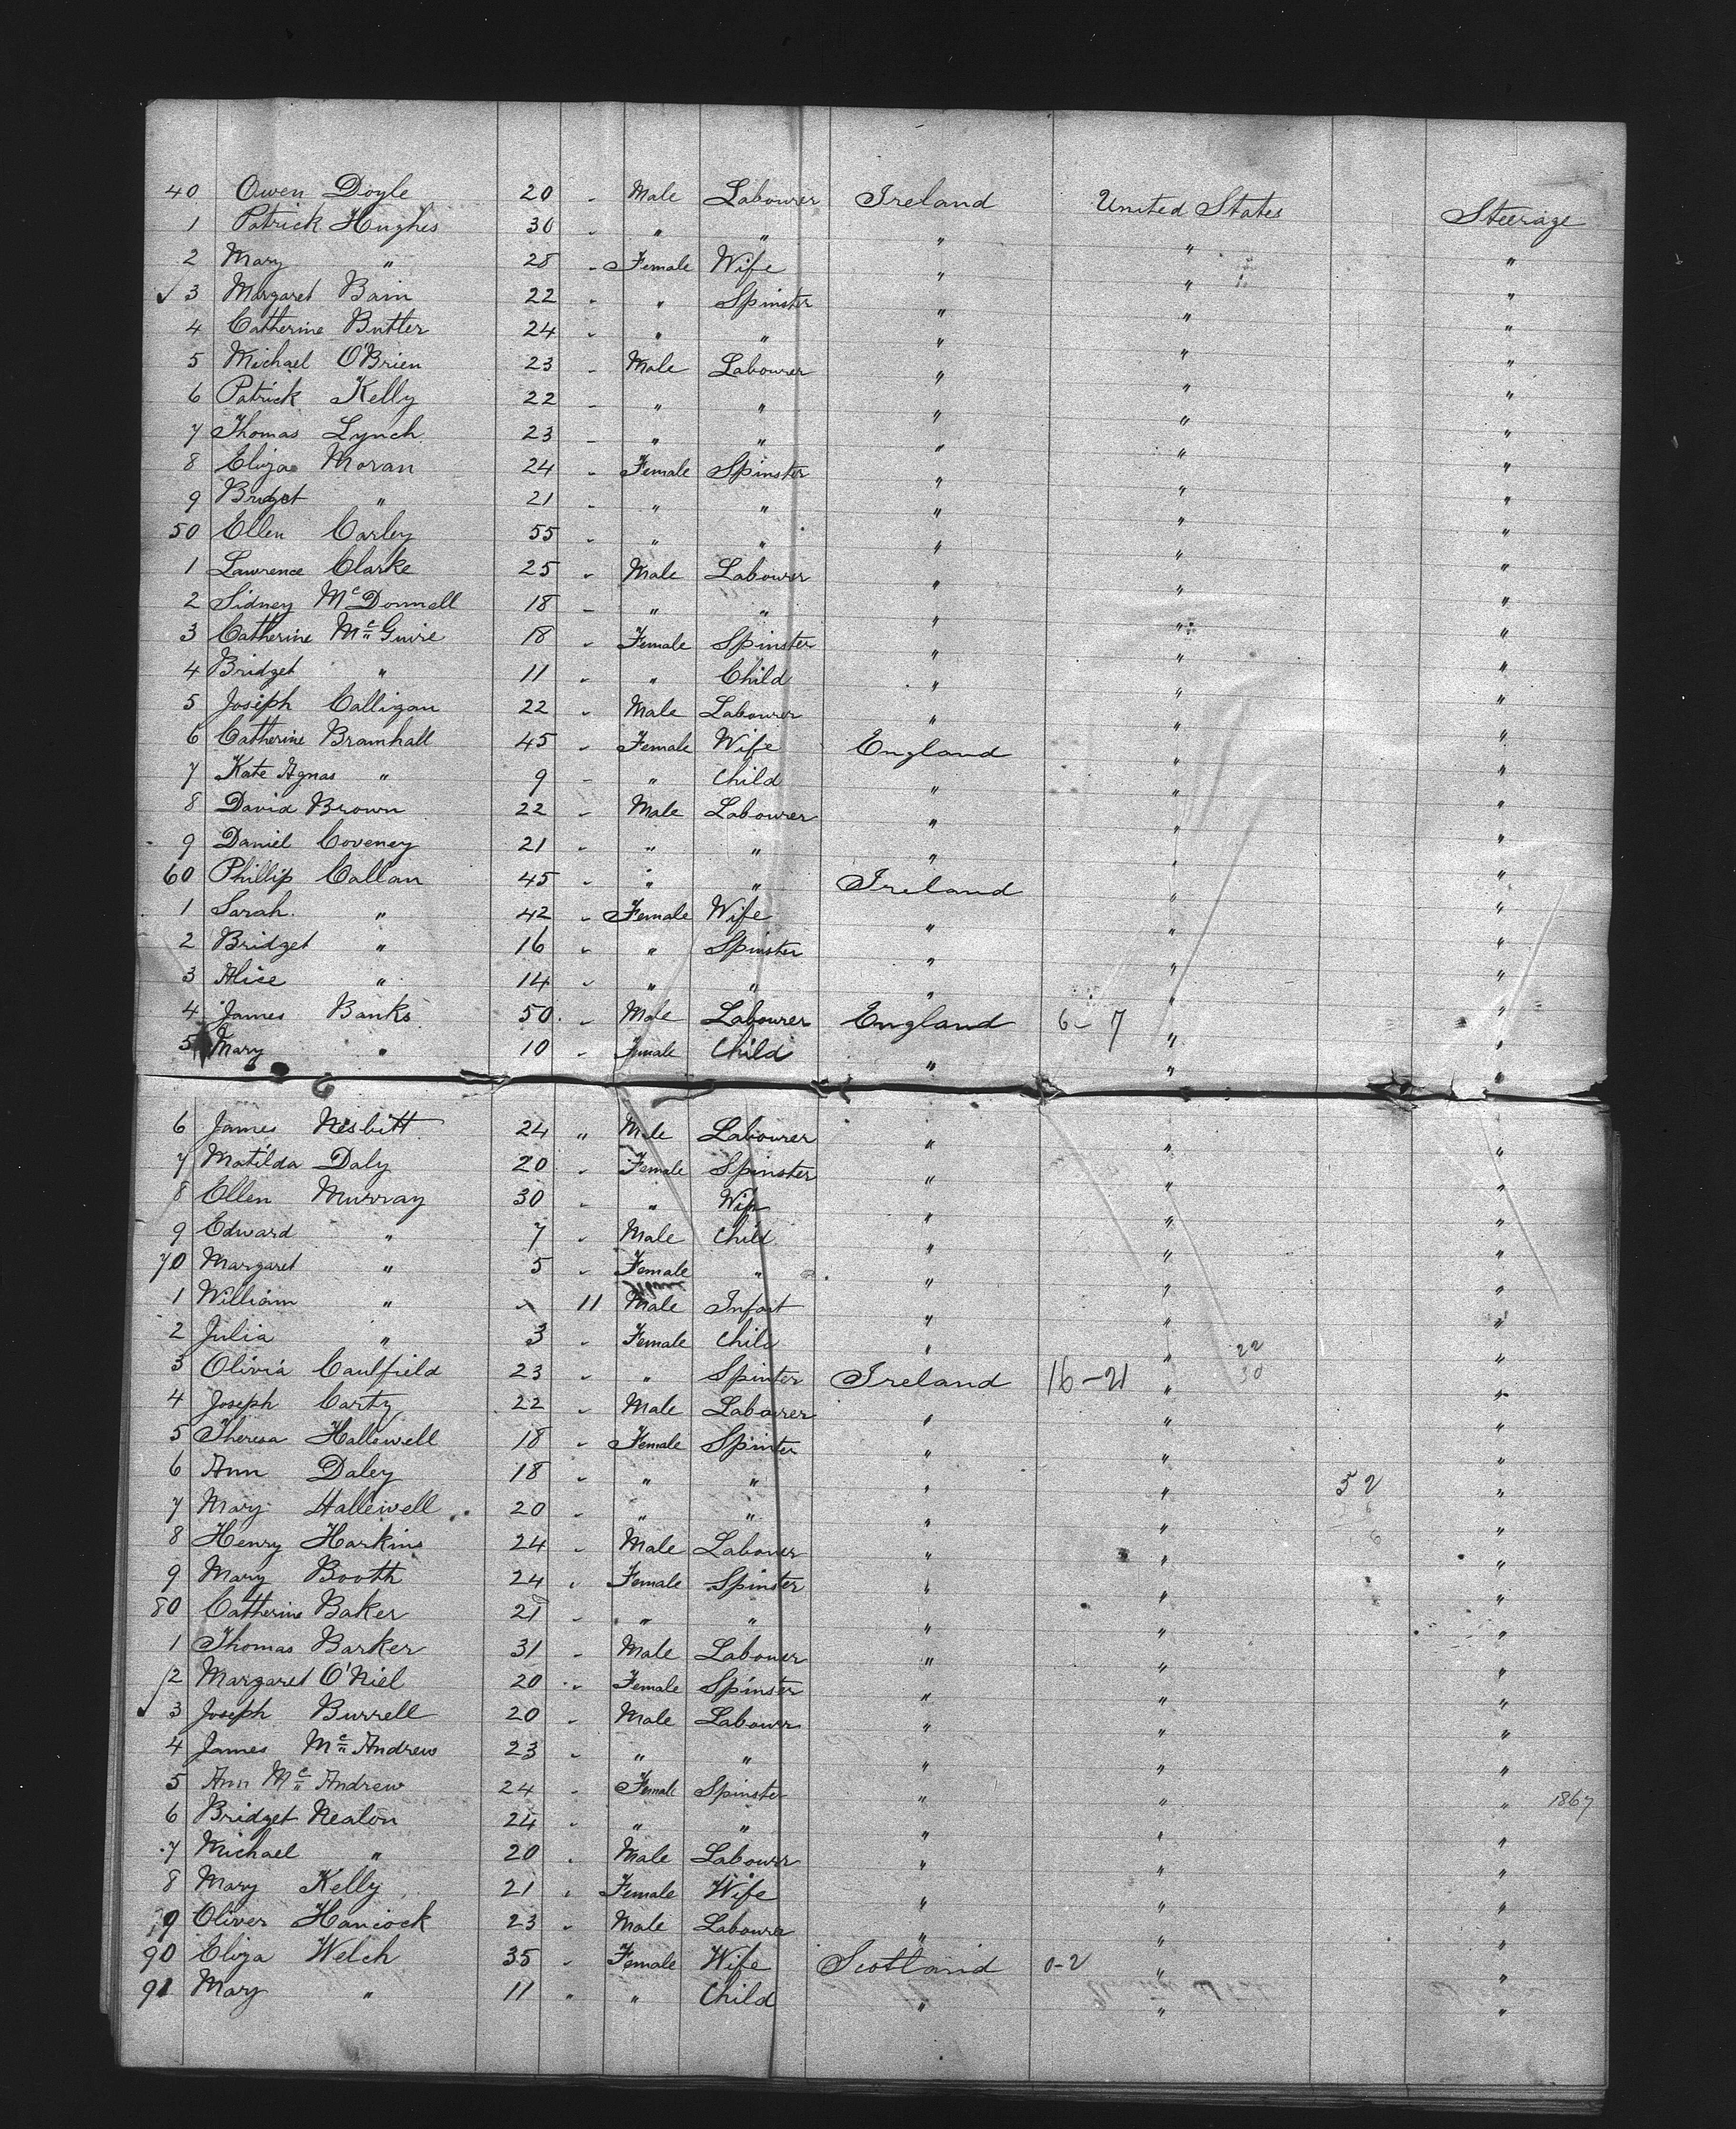 40 Owen Doyle 20 " Male Labourer Ireland United States Steerage
1 Patrick Hughes 30 " " " " " "
2 Mary " 28 " Female Wife " " "
✓ 3 Margaret Bain 22 " " Spinster " " "
4 Catherine Butler 24 " " " " " "
5 Michael O'Brien 23 " Male Labourer " " "
6 Patrick Kelly 22 " " " " " "
7 Thomas Lynch 23 " " " " " "
8 Eliza Moran 24 " Female Spinster " " "
9 Bridget " 21 " " " " " "
50 Ellen Carley 55 " " " " " "
1 Lawrence Clarke 25 " Male Labourer " " "
2 Sidney McDonnell 18 " " " " " "
3 Catherine McGuire 18 " Female Spinster " " "
4 Bridget " 11 " " Child " " "
5 Joseph Calligan 22 " Male Labourer " " "
6 Catherine Bramhall 45 " Female Wife England " "
7 Kate Agnas " 9 " " Child " " "
8 David Brown 22 " Male Labourer " " "
9 Daniel Coveney 21 " " " " " "
60 Phillip Callan 45 " " " Ireland " "
1 Sarah " 42 " Female Wife " " "
2 Bridget " 16 " " Spinster " " "
3 Alice " 14 " " " " " "
4 James Banks 50 " Male Labourer England 6-7 " "
5 Mary " 10 " Female Child " " "
6 James Nesbitt 24 " Male Labourer " " "
7 Matilda Daly 20 " Female Spinster " " "
8 Ellen Murray 30 " " Wife " " "
9 Edward " 7 " Male Child " " "
70 Margaret " 5 " Female " " " "
1 William " " 11 Male Infant " " "
2 Julia " 3 " Female Child " " 22 "
3 Olivia Caulfield 23 " " Spinter Ireland 16-21 " 30 "
4 Joseph Carty 22 " Male Labourer " " "
5 Theresa Hallewell 18 " Female Spinter " " "
6 Ann Daley 18 " " " " " 52 "
7 Mary Hallewell 20 " " " " " 6 "
8 Henry Harkins 24 " Male Labouer " " 6 "
9 Mary Booth 24 " Female Spinster " " "
80 Catherine Baker 21 " " " " " "
1 Thomas Barker 31 " Male Labouer " " "
2 Margaret O'Niel 20 " Female Spinster " " "
✓ 3 Joseph Burrell 20 " Male Labourr " " "
4 James Mc Andrew 23 " " " " " "
5 Ann Mc Andrew 24 " Female Spinster " " " 1867
6 Bridget Nealon 24 " " " " " "
7 Michael " 20 " Male Labourr " " "
8 Mary Kelly 21 " Female Wife " " "
9 Oliver Hancock 23 " Male Labourer " " "
90 Eliza Welch 35 " Female Wife Scotland 0-2 " "
91 Mary " 11 " " Child " " "